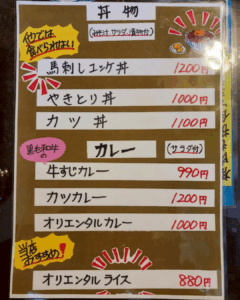 丼物
他では
食べられない
馬刺しユッケ丼 1200円
やきとり丼 1000円
カツ丼 1100円
黒毛和牛の
カレー (サラダ付)
牛すじカレー 990円
カツカレー 1200円
オリエンタルカレー 1000円
当店
おすすめ!
オリエンタルライス 880円